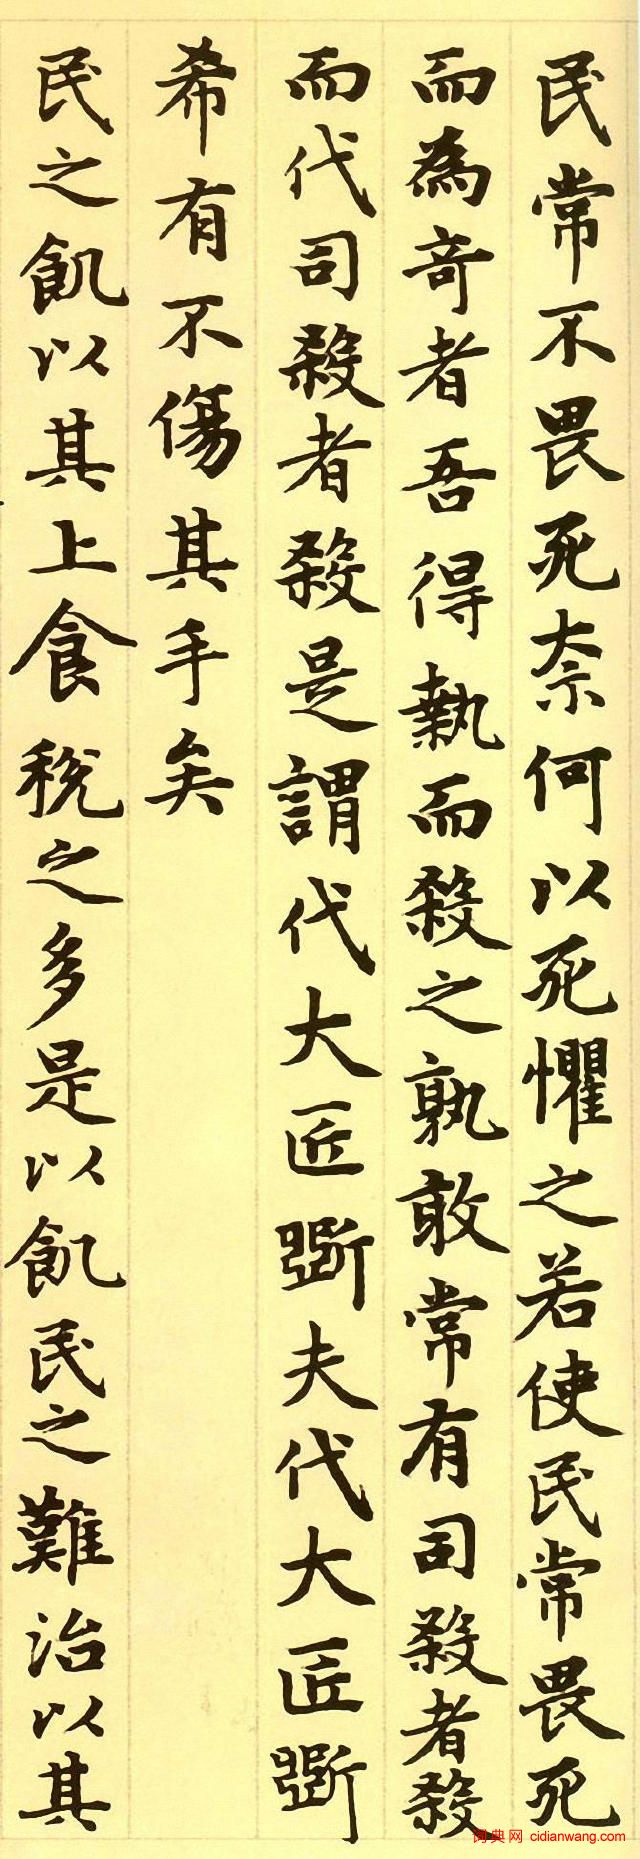 民常不畏死奈何以死懼之若使民常畏死
而為奇者吾得執而殺之孰敢常有司殺者殺
而代司殺者殺是謂代大匠斵夫代大匠斵
希有不傷其手矣
民之飢以其上食稅之多是以飢民之難治以其
词典网 cidianwang.com